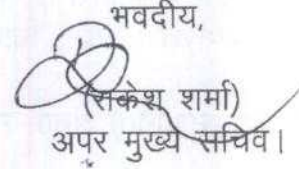 भवदीय,
(राकेश शर्मा)
अपर मुख्य सचिव।